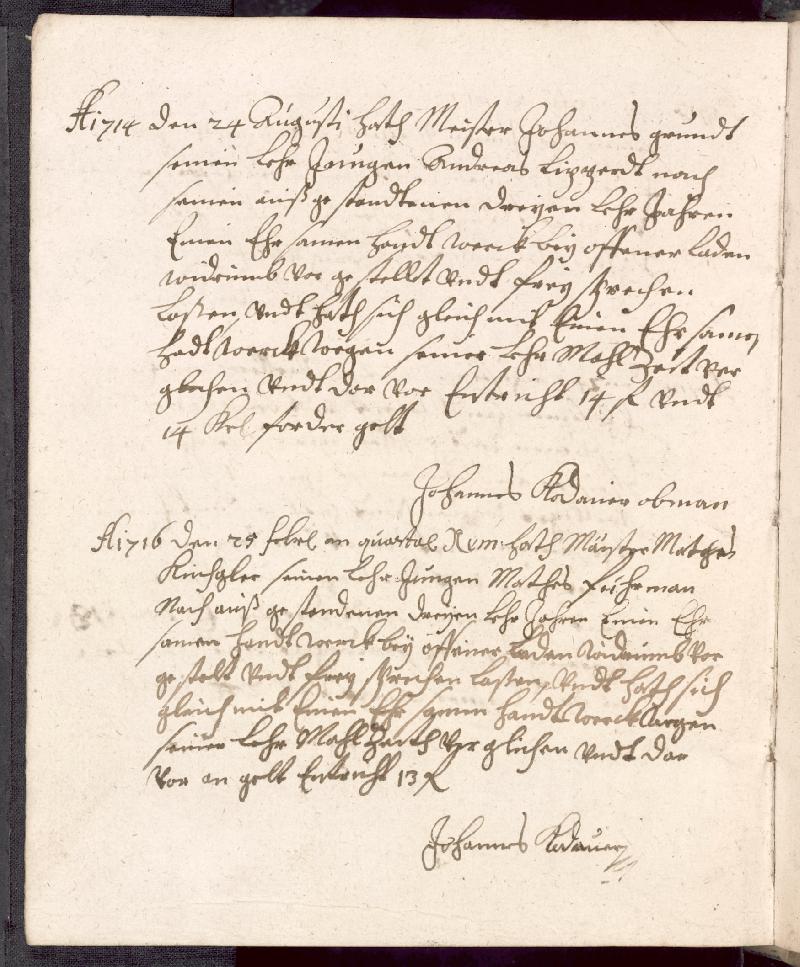 A 1714 den 24 Augusti hath Meister Johannes grundt
seinen Lehr Jungen Andreas Lippердt nach
seinen auß ge standtenen dreyen Lehr Jahren
Einen Ehr samen handt werck bey offener laden
widrumb vor ge stellt vndt frey sprechen
Laßen, vndt hath sich gleich mit Einen Ehr samen
hadt werck wegen seiner Lehr Mahl Zeit ver
glichen vndt dar vor Entricht 14 f vndt
14 forder gelt
Johannes Kodauer obman
A 1716 den 25 febrl an quartal Rem hath Mäister Mathes
seinen Lehr Jungen Mathes führman
Nach auß ge standenen dreyen Lehr Jahren Einen Ehr
samen handt werck bey offener Laden widrumb vor
ge stelt vndt frey sprechen Laßen, vndt hath sich
gleich mit Einen Ehr samen handt werck wegen
seiner Lehr Mahl Zeith ver glichen vndt dar
vor an gelt Entricht 13 f
Johannes Kodauer